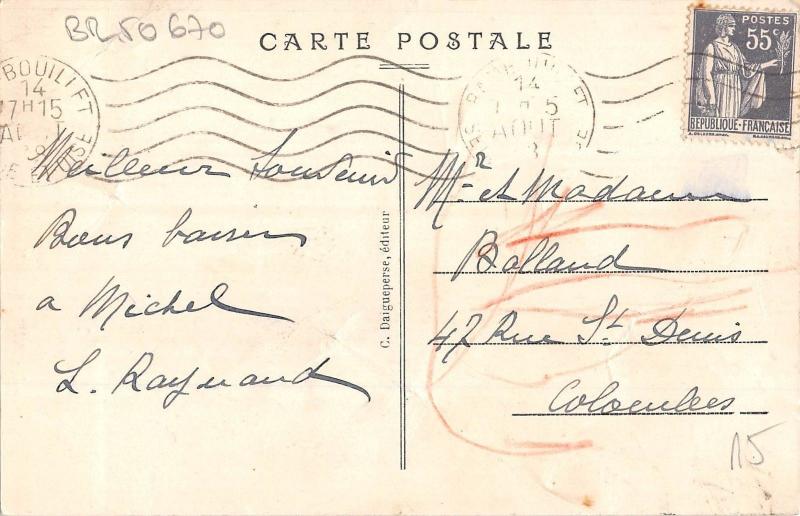 BR50 670
CARTE POSTALE
POSTES
55c
REPUBLIQUE-FRANÇAISE
14
7H15
AOUT
14
AOUT
Meilleur Souvenir
Bons baisers
a Michel
L. Raynaud
C. Daigueperse, éditeur
Mr et Madame
Bolland
47 Rue St Denis
Colombes
15